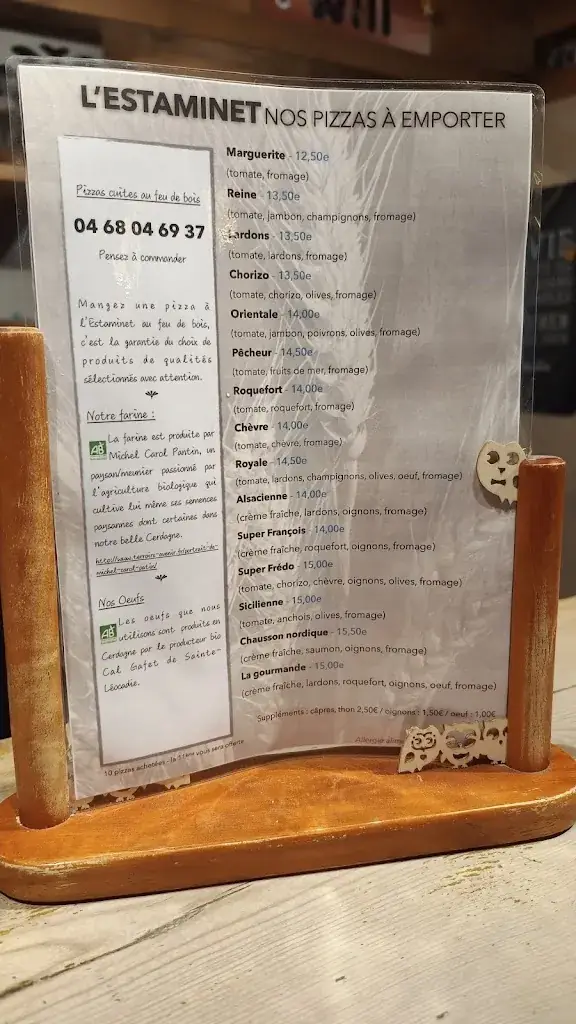 L'ESTAMINET NOS PIZZAS À EMPORTER
Pizzas cuites au feu de bois
04 68 04 69 37
Pensez à commander
Mangez une pizza à
l'Estaminet au feu de bois,
c'est la garantie du choix de
produits de qualités
sélectionnés avec attention.
Notre farine :
AB
La farine est produite par
Michel Carol Pantin, un
paysan/meunier passionné par
l'agriculture biologique qui
cultive lui même ses semences
paysannes dont certaines dans
notre belle Cerdagne.
michel-carol-patin/
Nos Oeufs
AB
Les oeufs que nous
utilisons sont produits en
Cerdagne par le producteur bio
Cal Gafet de Sainte-
Léocadie.
10 pizzas achetées - la 11ème vous sera offerte
Marguerite - 12,50e
(tomate, fromage)
Reine - 13,50e
(tomate, jambon, champignons, fromage)
Lardons - 13,50e
(tomate, lardons, fromage)
Chorizo - 13,50e
(tomate, chorizo, olives, fromage)
Orientale - 14,00e
(tomate, jambon, poivrons, olives, fromage)
Pêcheur - 14,50e
(tomate, fruits de mer, fromage)
Roquefort - 14,00e
(tomate, roquefort, fromage)
Chèvre - 14,00e
(tomate, chèvre, fromage)
Royale - 14,50e
(tomate, lardons, champignons, olives, oeuf, fromage)
Alsacienne - 14,00e
(crème fraîche, lardons, oignons, fromage)
Super François - 14,00e
(crème fraîche, roquefort, oignons, fromage)
Super Frédo - 15,00e
(tomate, chorizo, chèvre, oignons, olives, fromage)
Sicilienne - 15,00e
(tomate, anchois, olives, fromage)
Chausson nordique - 15,50e
(crème fraîche, saumon, oignons, fromage)
La gourmande - 15,00e
(crème fraîche, lardons, roquefort, oignons, oeuf, fromage)
Suppléments : câpres, thon 2,50€ / oignons : 1,50€ / oeuf : 1,00€
Allergie